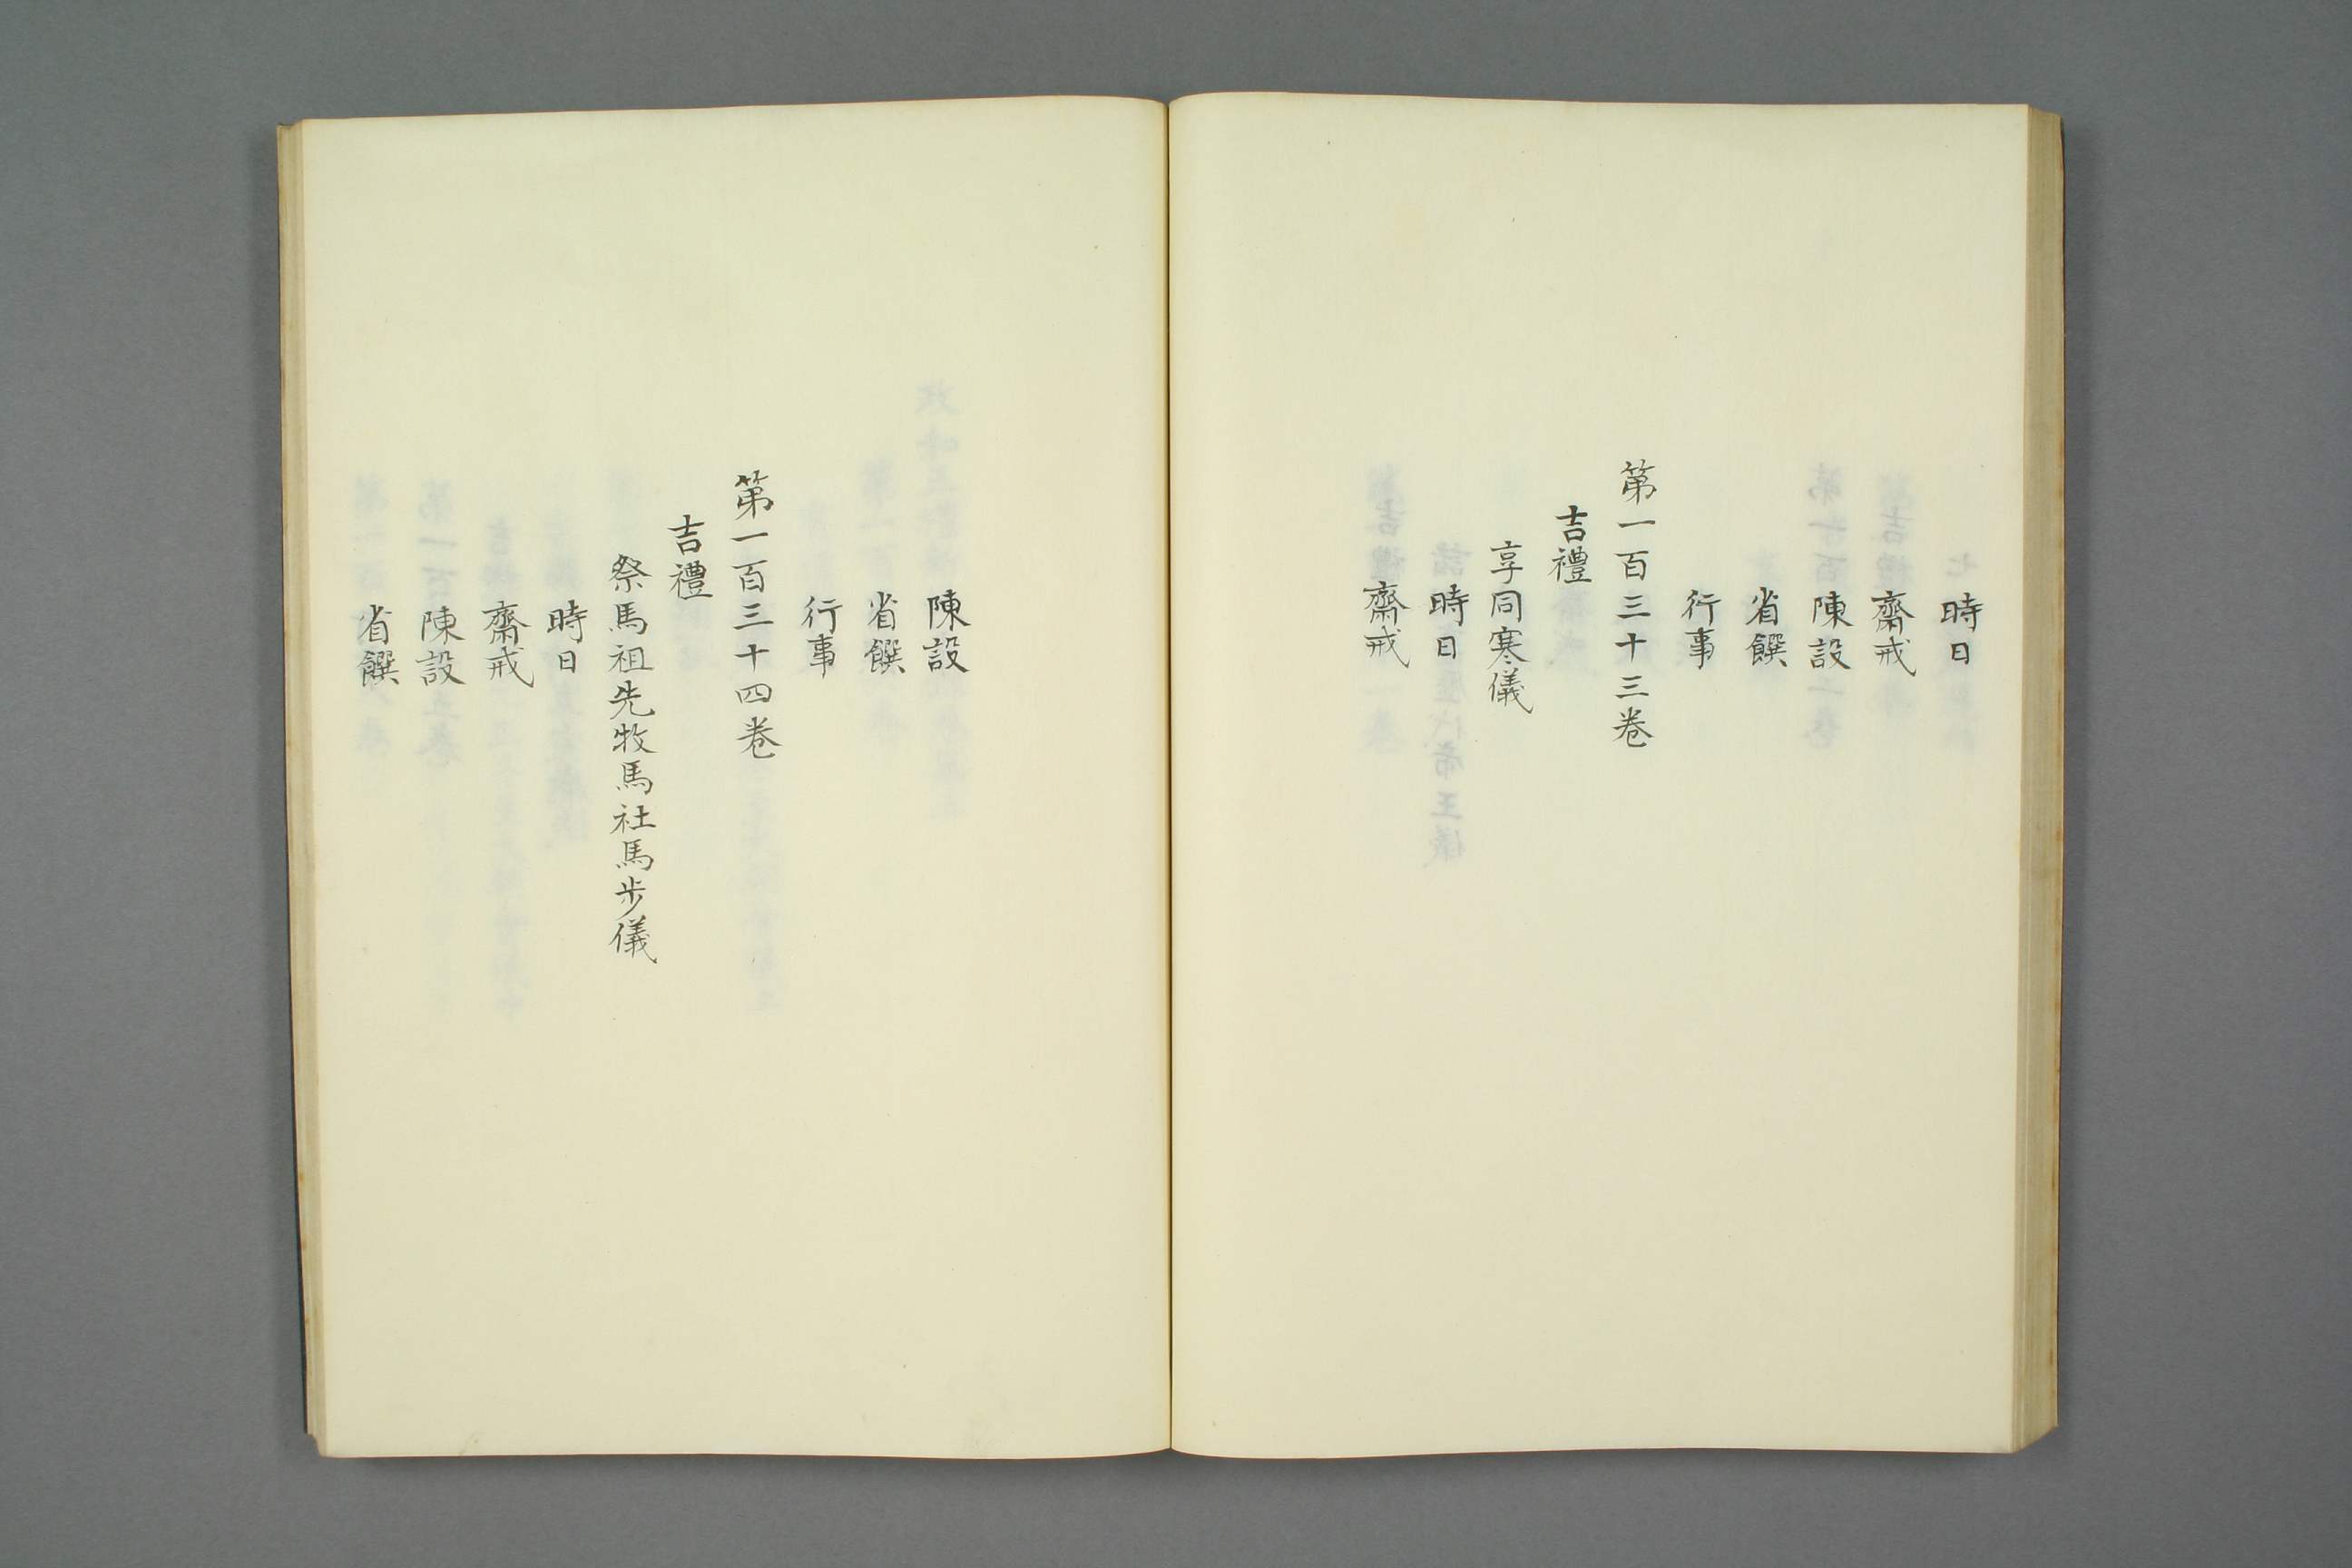 時日
齋戒
陳設
省饌
行事
第一百三十三卷
吉禮
享同寒儀
時日
齋戒
陳設
省饌
行事
第一百三十四卷
吉禮
祭馬祖先牧馬社馬步儀
時日
齋戒
陳設
省饌